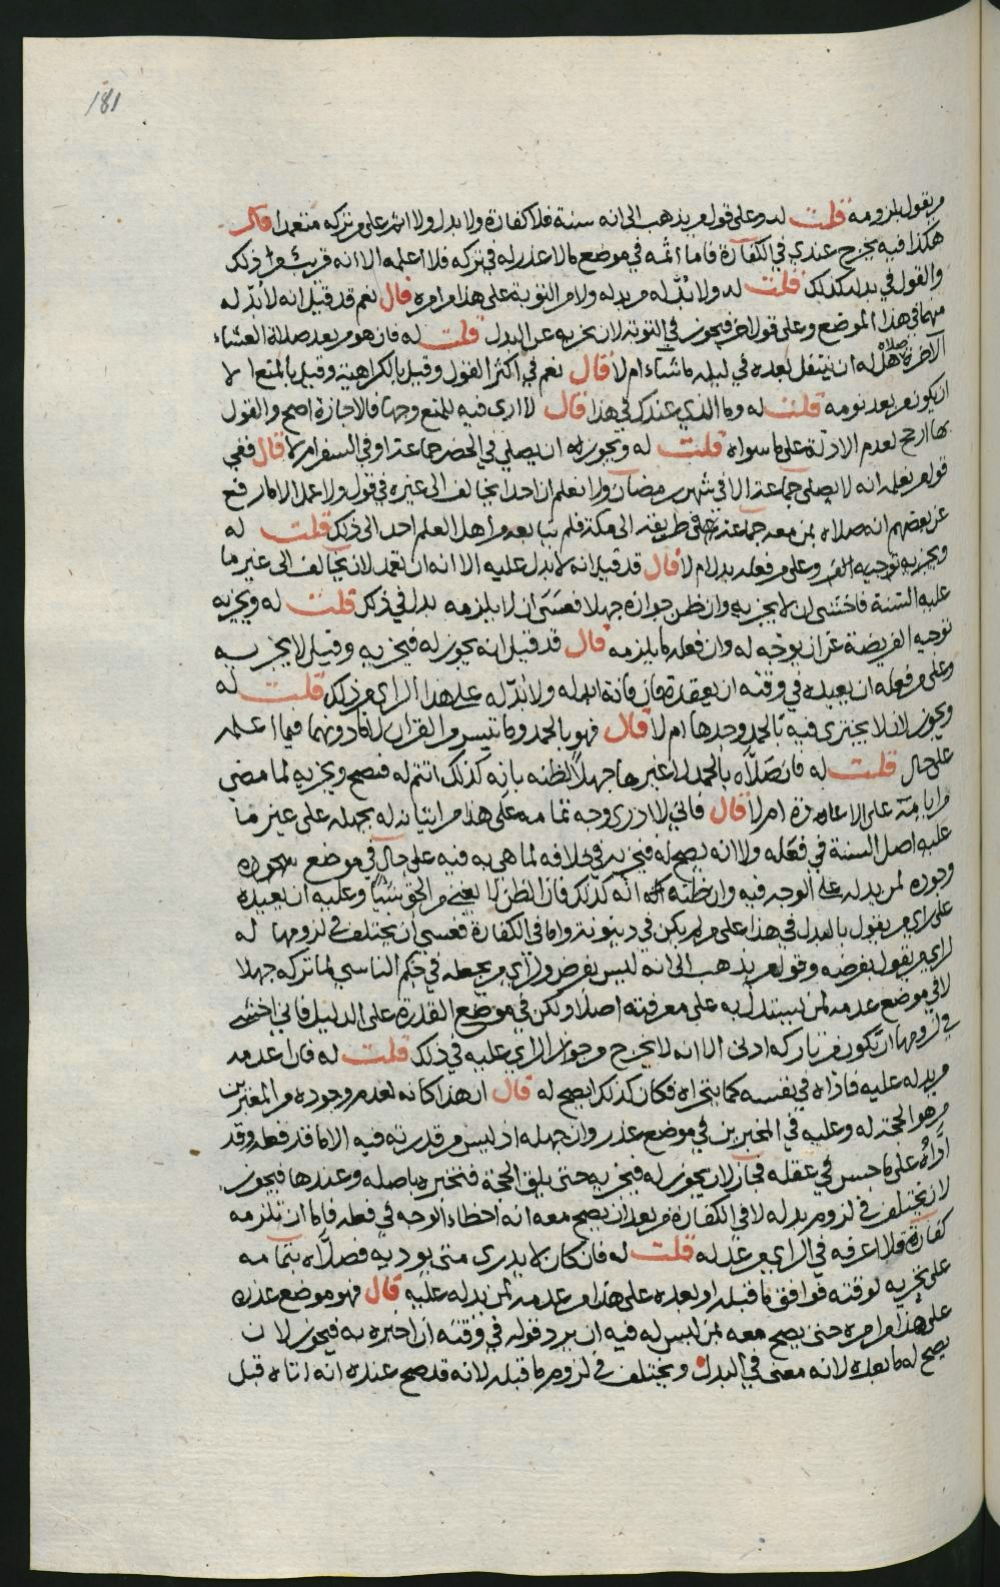 181
من يقول بلزومه قلت له وعلى قول من يذهب الى انه سنة فلا كفارة ولا بدل ولا اثم على من تركه متعمدا قال
هكذا فيه يخرج عندي في الكفارة فاما اثمه في موضع ما لا عذر له في تركه فلا اعلمه الا انه قريب من ذلك
والقول في بدله كذلك قلت له ولا بدّ له من بدله ولا من التوبة على هذا من امره قال نعم قد قيل انه لا بدّ له
منهما في هذا الموضع وعلى قول اخر فيجوز في التوبة لان تجزيه عن البدل قلت له فان هو من بعد صلاة العشاء
الاخرة صلاه هل له ان يتنفل بعده في ليله ما شاء ام لا قال نعم في اكثر القول وقيل بالكراهية وقيل بالمنع الا
ان يكون من بعد نومه قلت له وما الذي عندك في هذا قال لا ارى فيه للمنع وجها فالاجازة اصح والقول
بها ارجح لعدم الادلة على ما سواه قلت له ويجوز له ان يصلي في الحضر جماعة او في السفر ام لا قال ففي
قولهم نعلمه انه لا يصلى جماعة الا في شهر رمضان ولا نعلم ان احدا يخالف الى غيره في قول ولا عمل الا ما رفع
عن بعضهم انه صلاه بمن معه جماعة في طريقه الى مكة فلم يتابعه من اهل العلم احد الى ذلك قلت له
ويجزيه توجيه الفرض وعلى من فعله بدل ام لا قال قد قيل انه لا بدل عليه الا انه ان تعمد لان يخالف الى غير ما
عليه السنة فاخشى ان لا يجزيه وان ظن جوازه جهلا فعسى ان لا يلزمه بدل في ذلك قلت له ويجزيه
توجيه الفريضة عن ان يوجه له وان فعله ما يلزمه قال قد قيل انه يجوز له فيجزيه وقيل لا يجزيه
وعلى من فعله ان يعيده في وقته ان يعقد فان فاته ابدله ولا بدّ له على هذا الراي من ذلك قلت له
ويجوز لان لا يجتزي فيه بالحمد وحدها ام لا قال فهو بالحمد وما تيسر من القران لا ما دونهما فيما اعلمه
على حال قلت له فان صلّاه بالحمد لا غيرها جهلا لظنه بانه كذلك اتم له فيصح ويجزيه لما مضى
من ايامه على الاعادة ام لا قال فاني لا ادري وجه تمامه على هذا من اتيانه له بجهله على غير ما
عليه اصل السنة في فعله ولا انه يصح له فيجزيه في خلافه لما هي به فيه على حال في موضع
وجوده لمن يدله على الوجه فيه وان ظنه انه كذلك فان الظن لا يغني من الحق شيئا وعليه ان يعيده
على راي من يقول بالبدل في هذا على من لم يكن في دينونة واما في الكفارة فعسى ان يختلف في لزومها له
لراي من يقول بفرضه وقول من يذهب الى انه ليس بفرض ولراي من يجعله في حكم الناسي لما تركه جهلا
لا في موضع عدمه لمن يستدل به على معرفته اصلا ولكن في موضع القدرة على الدليل فاني اخشى
في لزومها ان تكون من تاركه ادنى الا انه لا يخرج من جواز الراي عليه في ذلك قلت له فان اعدمه
من يدله عليه فاداه في نفسه كما يتحراه فكان كذلك ايصح له قال ان هذا كانه لعدم وجوده من المعبرين
من هو الحجة له وعليه في المخبرين في موضع عذر وان جهله اذ ليس من قدرته فيه الا ما قد فعله وقد
ادّاه على ما حسن في عقله فجاز لان يجوز له فيجزيه حتى يلقى الحجة فتخبره باصله وعندها فيجوز
لان يختلف في لزوم بدله لا في الكفارة من بعد ان يصح معه انه اخطاء الوجه في فعله فاما ان تلزمه
كفارة فلا اعرفه في الراي من عدله قلت له فان كان لا يدري متى يوديه فصلّاه بتمامه
على تحريه لوقته فوافق ما قبله او بعده على هذا من عدمه لمن يدله عليه قال فهو موضع عذره
على هذا من امره حتى يصح معه بمن ليس له فيه ان يرد قوله في وقته ان اخبره به فيجوز لان
يصح له ما بعده لانه معنى في البدل ويختلف في لزوم ما قبله لانه قد صح عنده انه اتاه قبل